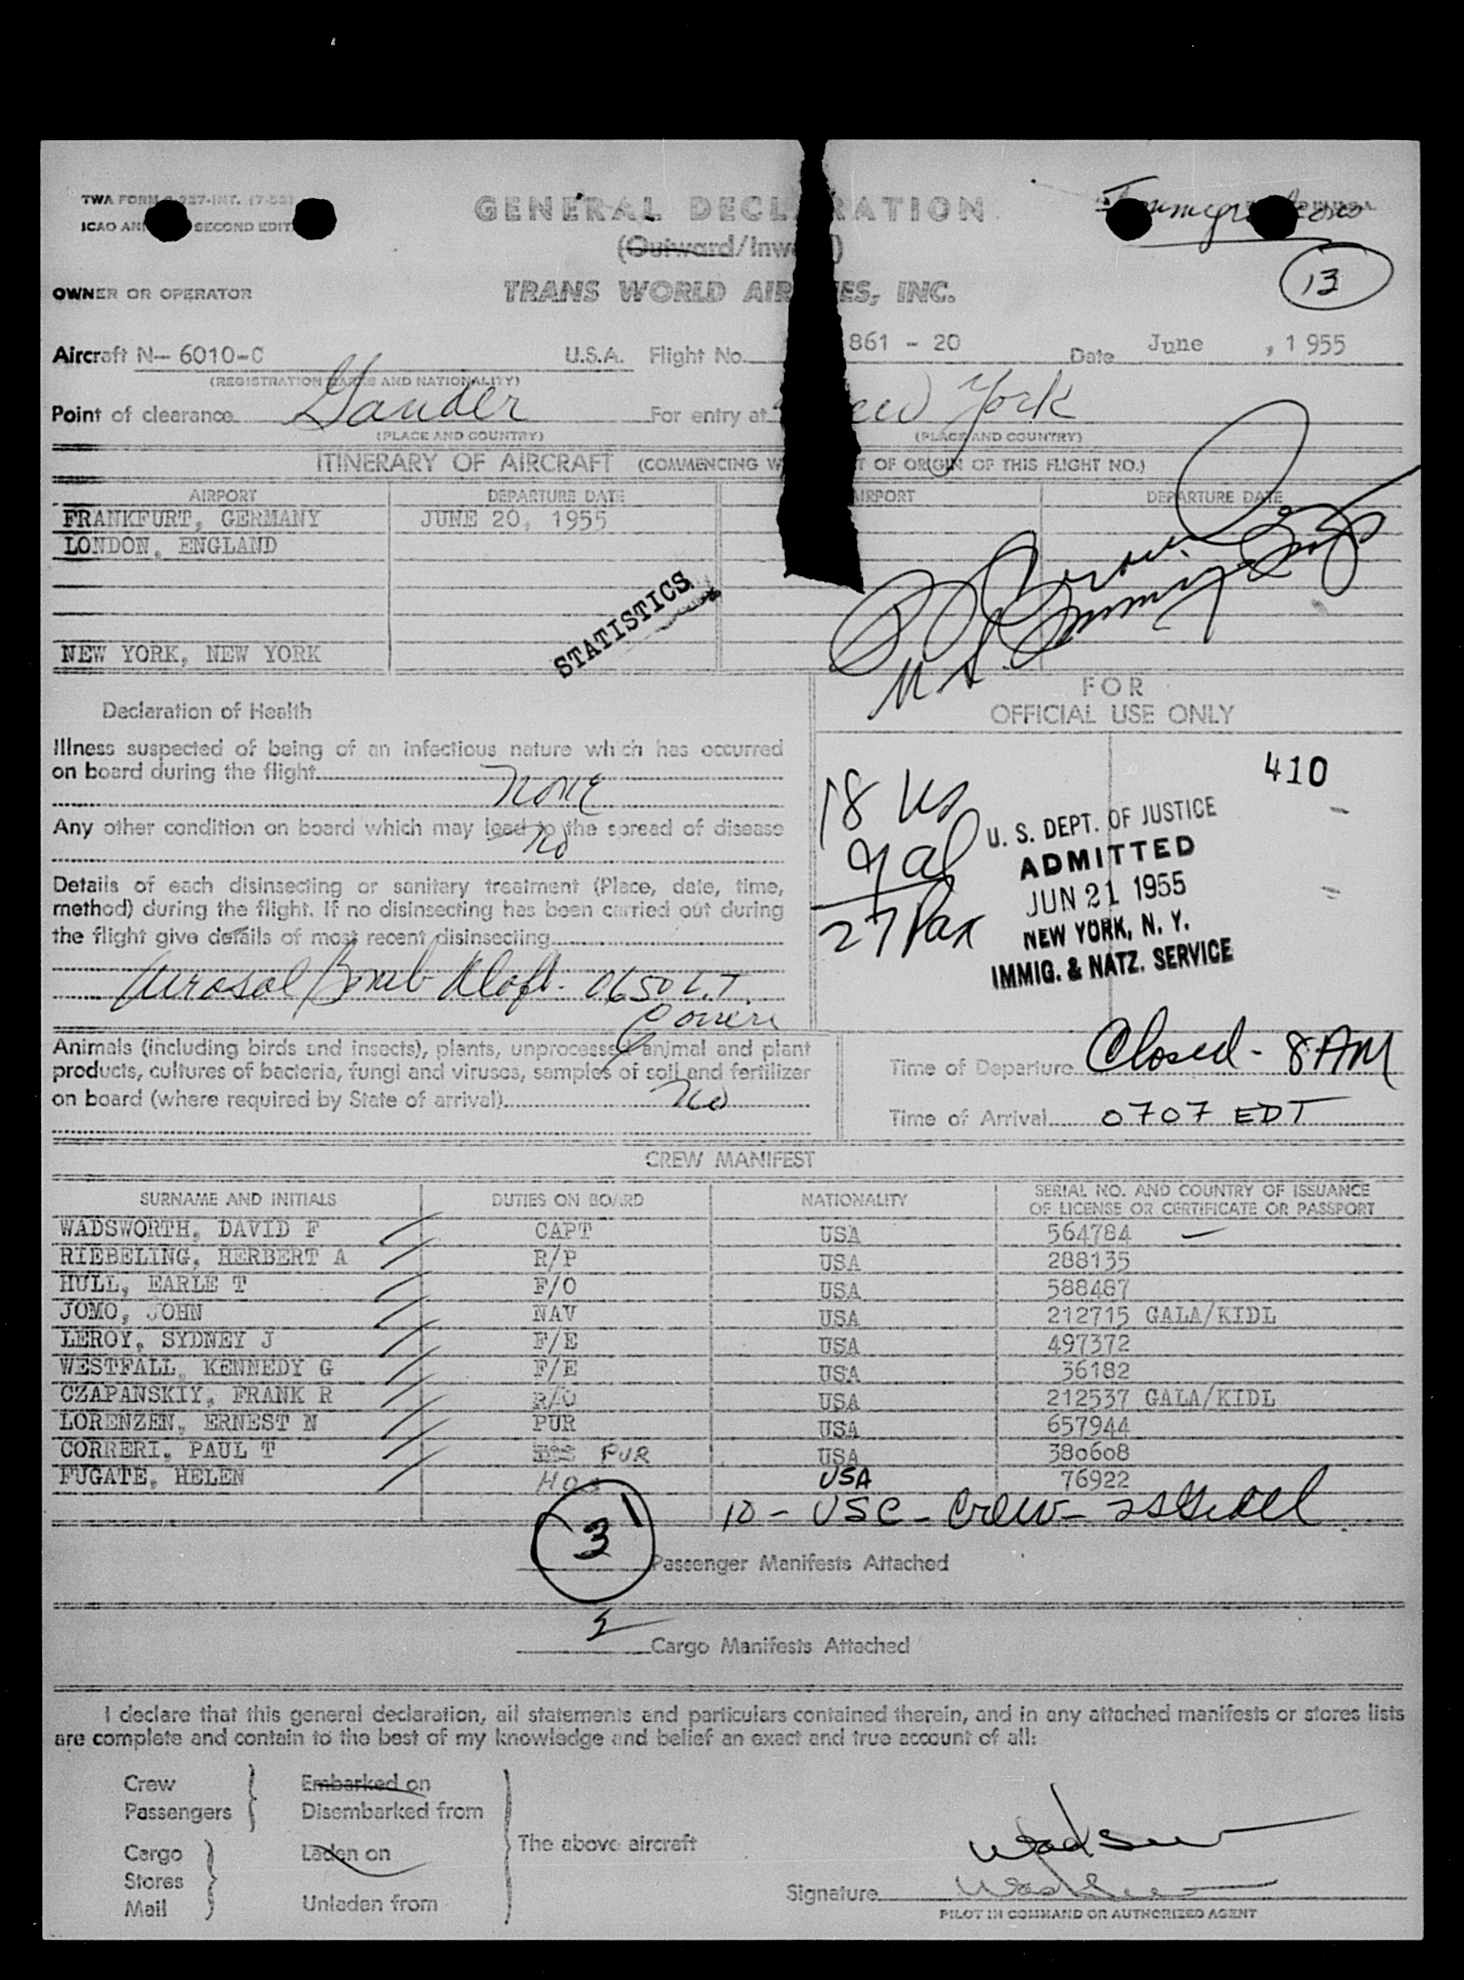 TWA FORM
ICAO AN SECOND EDIT
GENERAL DECL RATION
(Outward/Inw )
TRANS WORLD AIR ES, INC.
OWNER OR OPERATOR
13
Aircraft N- 6010-C U.S.A. Flight No. 861 - 20 Date June , 1955
(REGISTRATION MARKS AND NATIONALITY)
Point of clearance Gander For entry at New York
(PLACE AND COUNTRY) (PLACE AND COUNTRY)
ITINERARY OF AIRCRAFT (COMMENCING W T OF ORIGIN OF THIS FLIGHT NO.)
AIRPORT DEPARTURE DATE AIRPORT DEPARTURE DATE
FRANKFURT, GERMANY JUNE 20, 1955
LONDON, ENGLAND
STATISTICS
NEW YORK, NEW YORK
FOR
OFFICIAL USE ONLY
Declaration of Health
Illness suspected of being of an infectious nature which has occurred
on board during the flight
None
Any other condition on board which may lead to the spread of disease
No
Details of each disinsecting or sanitary treatment (Place, date, time,
method) during the flight. If no disinsecting has been carried out during
the flight give details of most recent disinsecting
Aerosol Bomb Aloft - 0650 L.T.
Correri
410
18 US
9 al
27 Pax
U. S. DEPT. OF JUSTICE
ADMITTED
JUN 21 1955
NEW YORK, N. Y.
IMMIG. & NATZ. SERVICE
Animals (including birds and insects), plants, unprocessed animal and plant
products, cultures of bacteria, fungi and viruses, samples of soil and fertilizer
on board (where required by State of arrival) No
Time of Departure Closed - 8 AM
Time of Arrival 0707 EDT
CREW MANIFEST
SURNAME AND INITIALS DUTIES ON BOARD NATIONALITY SERIAL NO. AND COUNTRY OF ISSUANCE
OF LICENSE OR CERTIFICATE OR PASSPORT
WADSWORTH, DAVID F CAPT USA 564784
RIEBELING, HERBERT A R/P USA 288135
HULL, EARLE T F/O USA 588487
JOMO, JOHN NAV USA 212715 GALA/KIDL
LEROY, SYDNEY J F/E USA 497372
WESTFALL, KENNEDY G F/E USA 36182
CZAPANSKIY, FRANK R R/O USA 212537 GALA/KIDL
LORENZEN, ERNEST N PUR USA 657944
CORRERI, PAUL T PUR USA 380608
FUGATE, HELEN HOS USA 76922
10 - USC - Crew -
3 Passenger Manifests Attached
Cargo Manifests Attached
I declare that this general declaration, all statements and particulars contained therein, and in any attached manifests or stores lists
are complete and contain to the best of my knowledge and belief an exact and true account of all:
Crew Embarked on
Passengers Disembarked from
The above aircraft
Cargo Laden on
Stores
Mail Unladen from
Signature
PILOT IN COMMAND OR AUTHORIZED AGENT